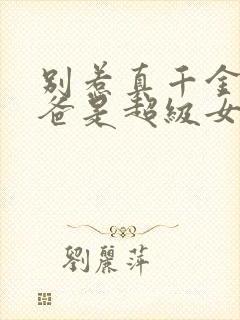 别惹真千金
爸是超级女
劉麗萍